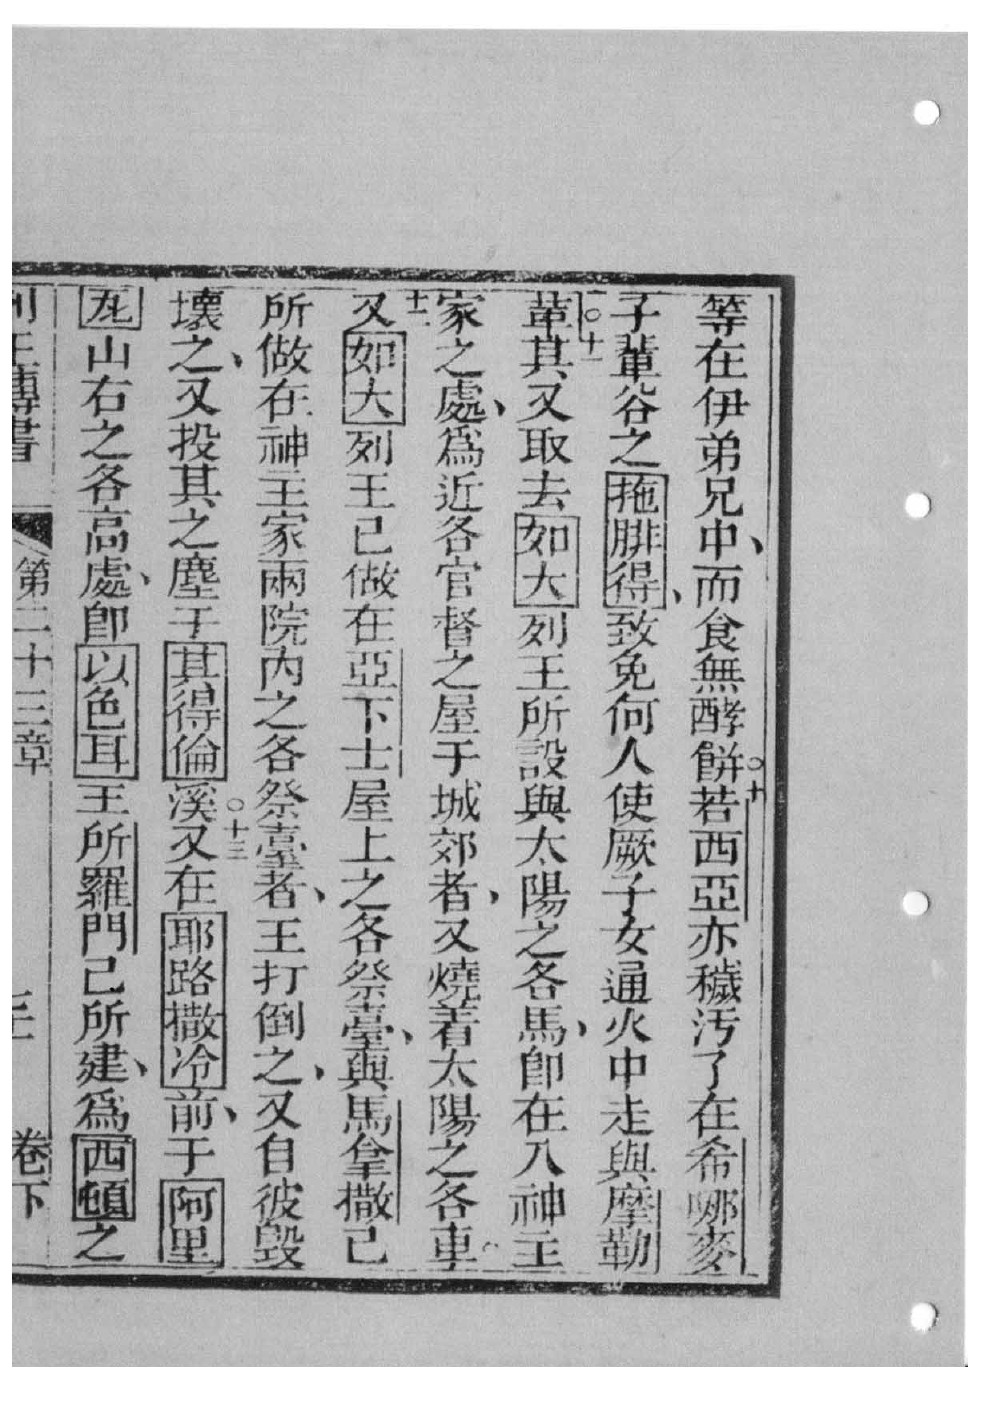 等在伊弟兄中、而食無酵餅○十若西亞亦穢汚了在希哪麥
子輩谷之拖腓得、致免何人使厥子女通火中走與摩勒
○十一其又取去如大列王所設與太陽之各馬、即在入神主
家之處、爲近各官督之屋于城郊者、又燒着太陽之各車
十二又如大列王已做在亞下士屋上之各祭臺、與馬拿撒已
所做在神主家兩院內之各祭臺者、王打倒之、又自彼毀
壞之、又投其之塵于其得倫溪○十三又在耶路撒冷前、于阿里
山右之各高處、即以色耳王所羅門已所建、爲西頓之
列王傳書 第二十三章 卷下